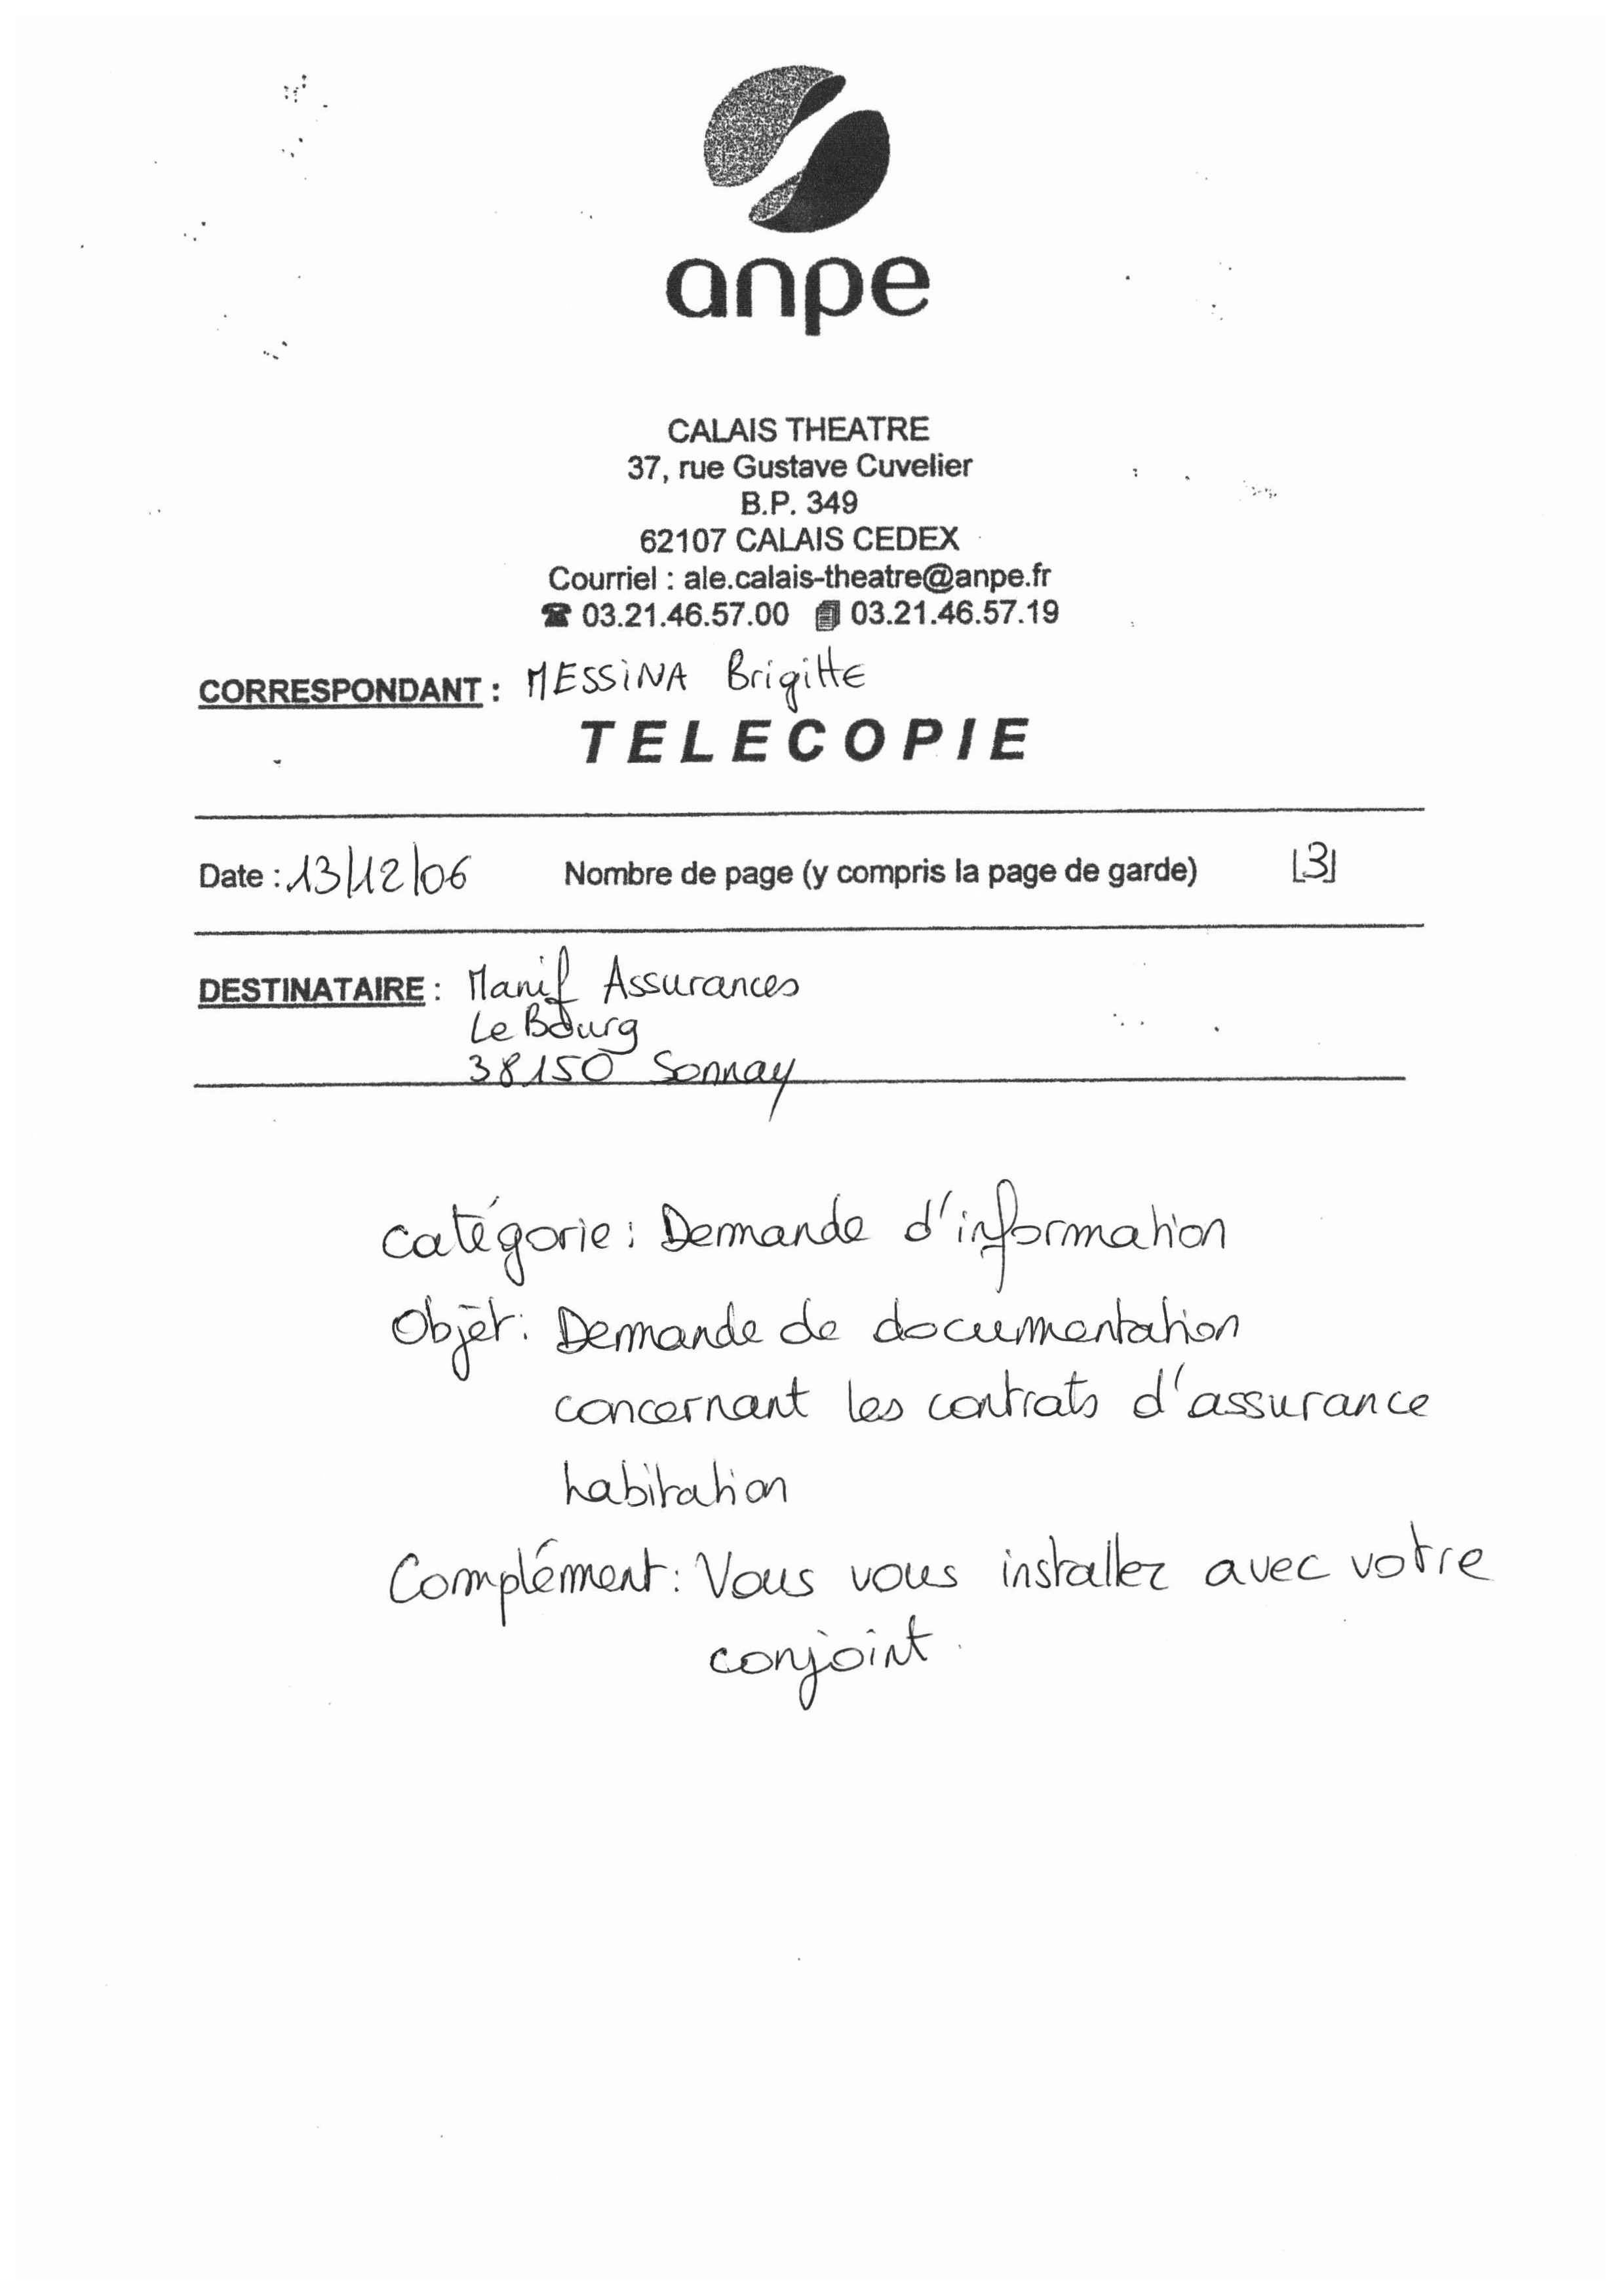 anpe
CALAIS THEATRE
37, rue Gustave Cuvelier
B.P. 349
62107 CALAIS CEDEX
Courriel : ale.calais-theatre@anpe.fr
☎ 03.21.46.57.00 03.21.46.57.19
CORRESPONDANT : MESSINA Brigitte
TELECOPIE
Date : 13/12/06 Nombre de page (y compris la page de garde) |3|
DESTINATAIRE : Manif Assurances
Le Bourg
38150 Sonnay
catégorie : Demande d'information
Objet : Demande de documentation
concernant les contrats d'assurance
habitation
Complément : Vous vous installez avec votre
conjoint.